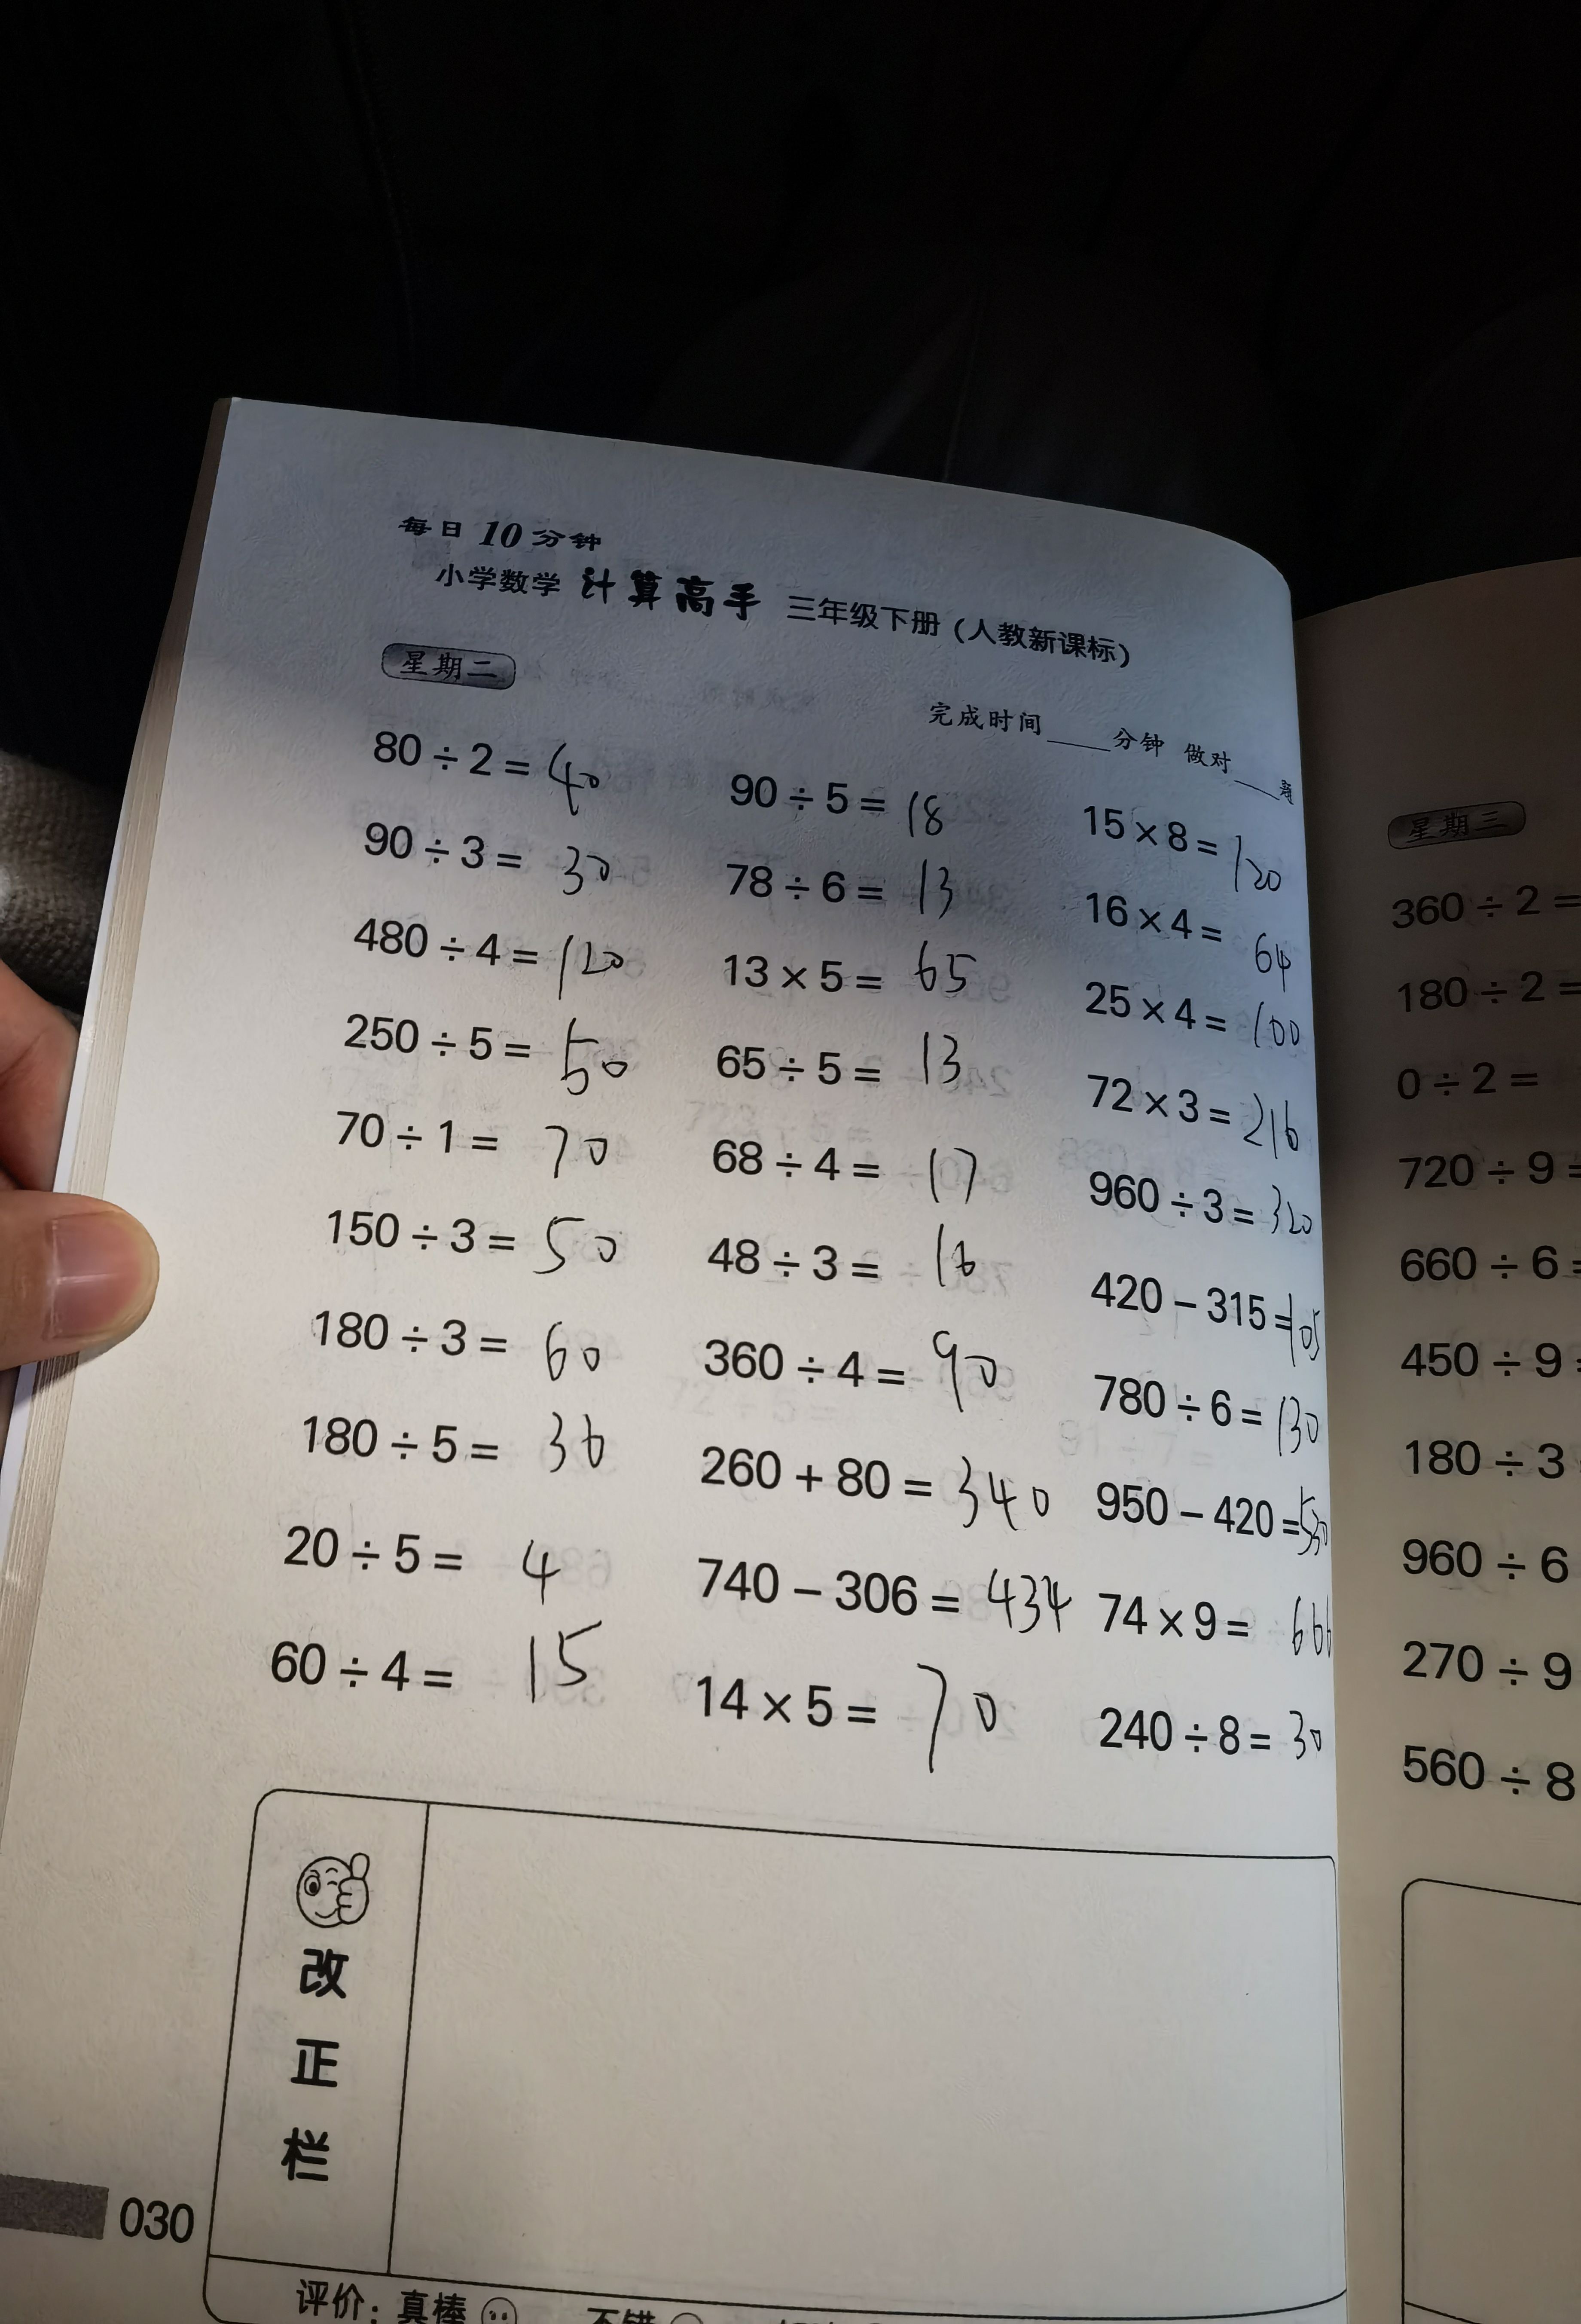 每日10分钟
小学数学 计算高手 三年级下册(人教新课标)
星期二
完成时间____分钟 做对____题
80÷2=40
90÷3=30
480÷4=120
250÷5=50
70÷1=70
150÷3=50
180÷3=60
180÷5=36
20÷5=4
60÷4=15
90÷5=18
78÷6=13
13×5=65
65÷5=13
68÷4=17
48÷3=16
360÷4=90
260+80=340
740-306=434
14×5=70
15×8=120
16×4=64
25×4=100
72×3=216
960÷3=320
420-315=105
780÷6=130
950-420=530
74×9=666
240÷8=30
改正栏
评价:真棒 不错
030
星期三
360÷2=
180÷2=
0÷2=
720÷9=
660÷6=
450÷9=
180÷3
960÷6
270÷9
560÷8